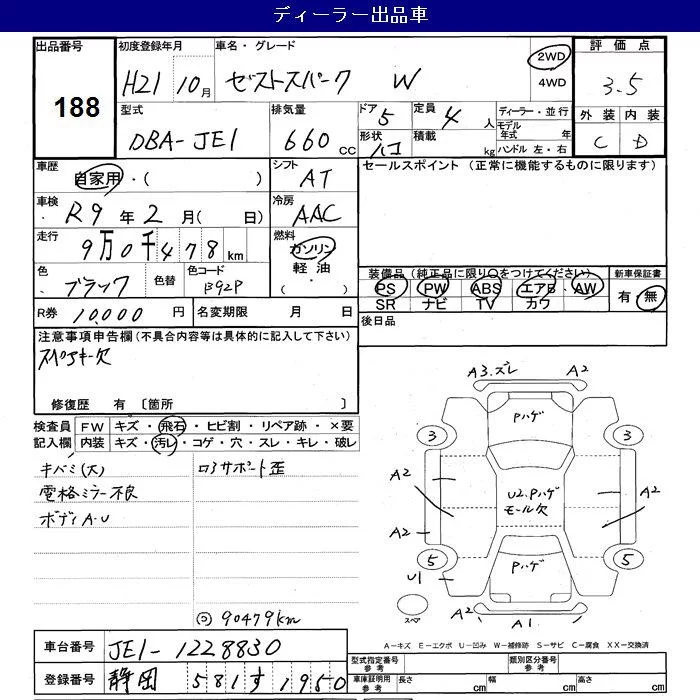 ディーラー出品車
出品番号 188
初度登録年月 H21 10月
車名・グレード ゼストスパーク W
2WD
4WD
評価点 3.5
外装 C
内装 D
型式 DBA-JE1
排気量 660 CC
ドア 5
形状 ハコ
定員 4人
積載 kg
ディーラー・並行
モデル年式 年
ハンドル 左・右
車歴 自家用・( )
シフト AT
セールスポイント (正常に機能するものに限ります)
車検 R9年2月( 日)
冷房 AAC
走行 9万0千478km
燃料 ガソリン
軽油・
・( )
色 ブラック
色替
色コード B92P
装備品(純正品に限り○をつけてください)
PS PW ABS エアB AW
SR ナビ TV カワ
新車保証書
有・無
R券 10,000円
名変期限 月 日
後日品
注意事項申告欄(不具合内容等は具体的に記入して下さい)
スペアキー欠
修復歴 有〔箇所 〕
検査員 FW キズ・飛石・ヒビ割・リペア跡・×要
記入欄 内装 キズ・汚レ・コゲ・穴・スレ・キレ・破レ
キバミ(大)
ロアサポート歪
電格ミラー不良
ボディA・U
90479km
A3.ズレ A2
Pハゲ
3 3
A2
U2.Pハゲ
モール欠
A2
A2
5 5
Pハゲ
U1
スペア
A2 A1
A2
A-キズ E-エクボ U-凹み W-補修跡 S-サビ C-腐食 XX-交換済
車台番号 JE1-1228830
型式指定番号 参考
類別区分番号 参考
登録番号 静岡 581 す 1950
車庫証明用 参考 長さ cm 幅 cm 高さ cm